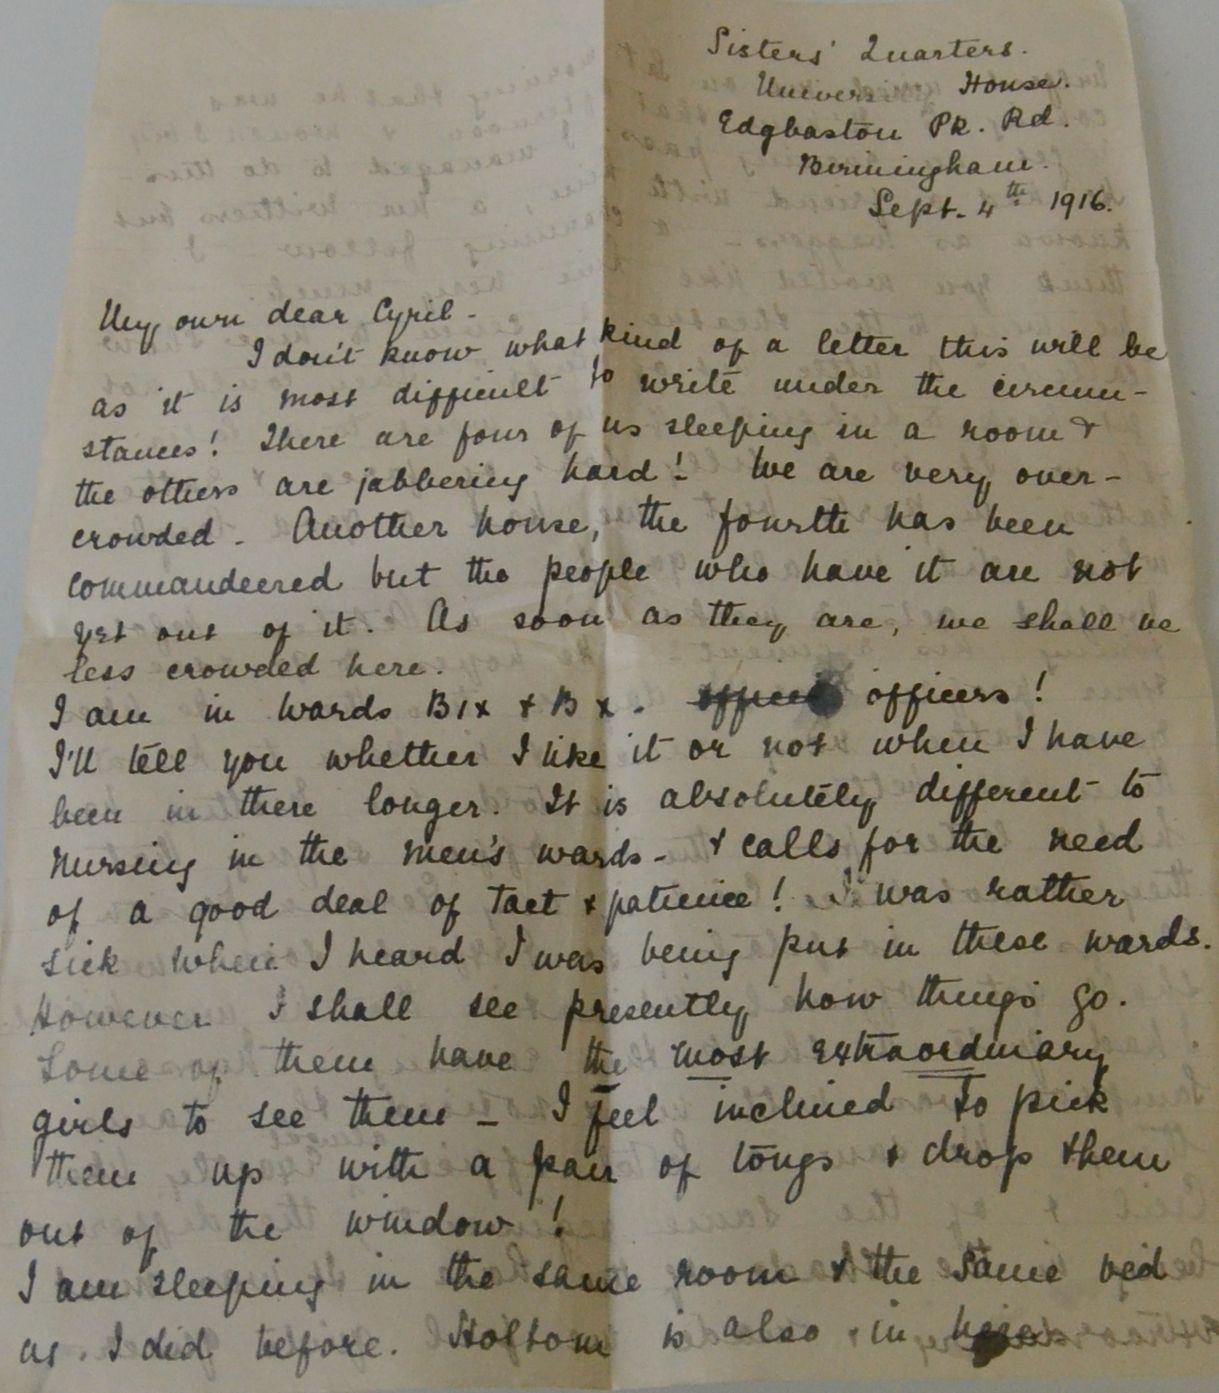 Sisters' Quarters.
House.
Edgbaston Pk. Rd.
Birmingham.
Sept. 4th 1916.
My own dear Cyril -
I don't know what kind of a letter this will be
as it is most difficult to write under the circum-
stances! There are four of us sleeping in a room &
the others are jabbering hard! We are very over-
crowded - Another house, the fourth has been
commandeered but the people who have it are not
yet out of it. As soon as they are, we shall be
less crowded here.
I am in wards B1x & Bx. officers!
I'll tell you whether I like it or not when I have
been in there longer. It is absolutely different to
nursing in the men's wards - & calls for the need
of a good deal of tact & patience! I was rather
sick when I heard I was being put in these wards.
However I shall see presently how things go.
Some of them have the most extraordinary
girls to see them - I feel inclined to pick
them up with a pair of tongs & drop them
out of the window!
I am sleeping in the same room & the same bed
as I did before. is also in